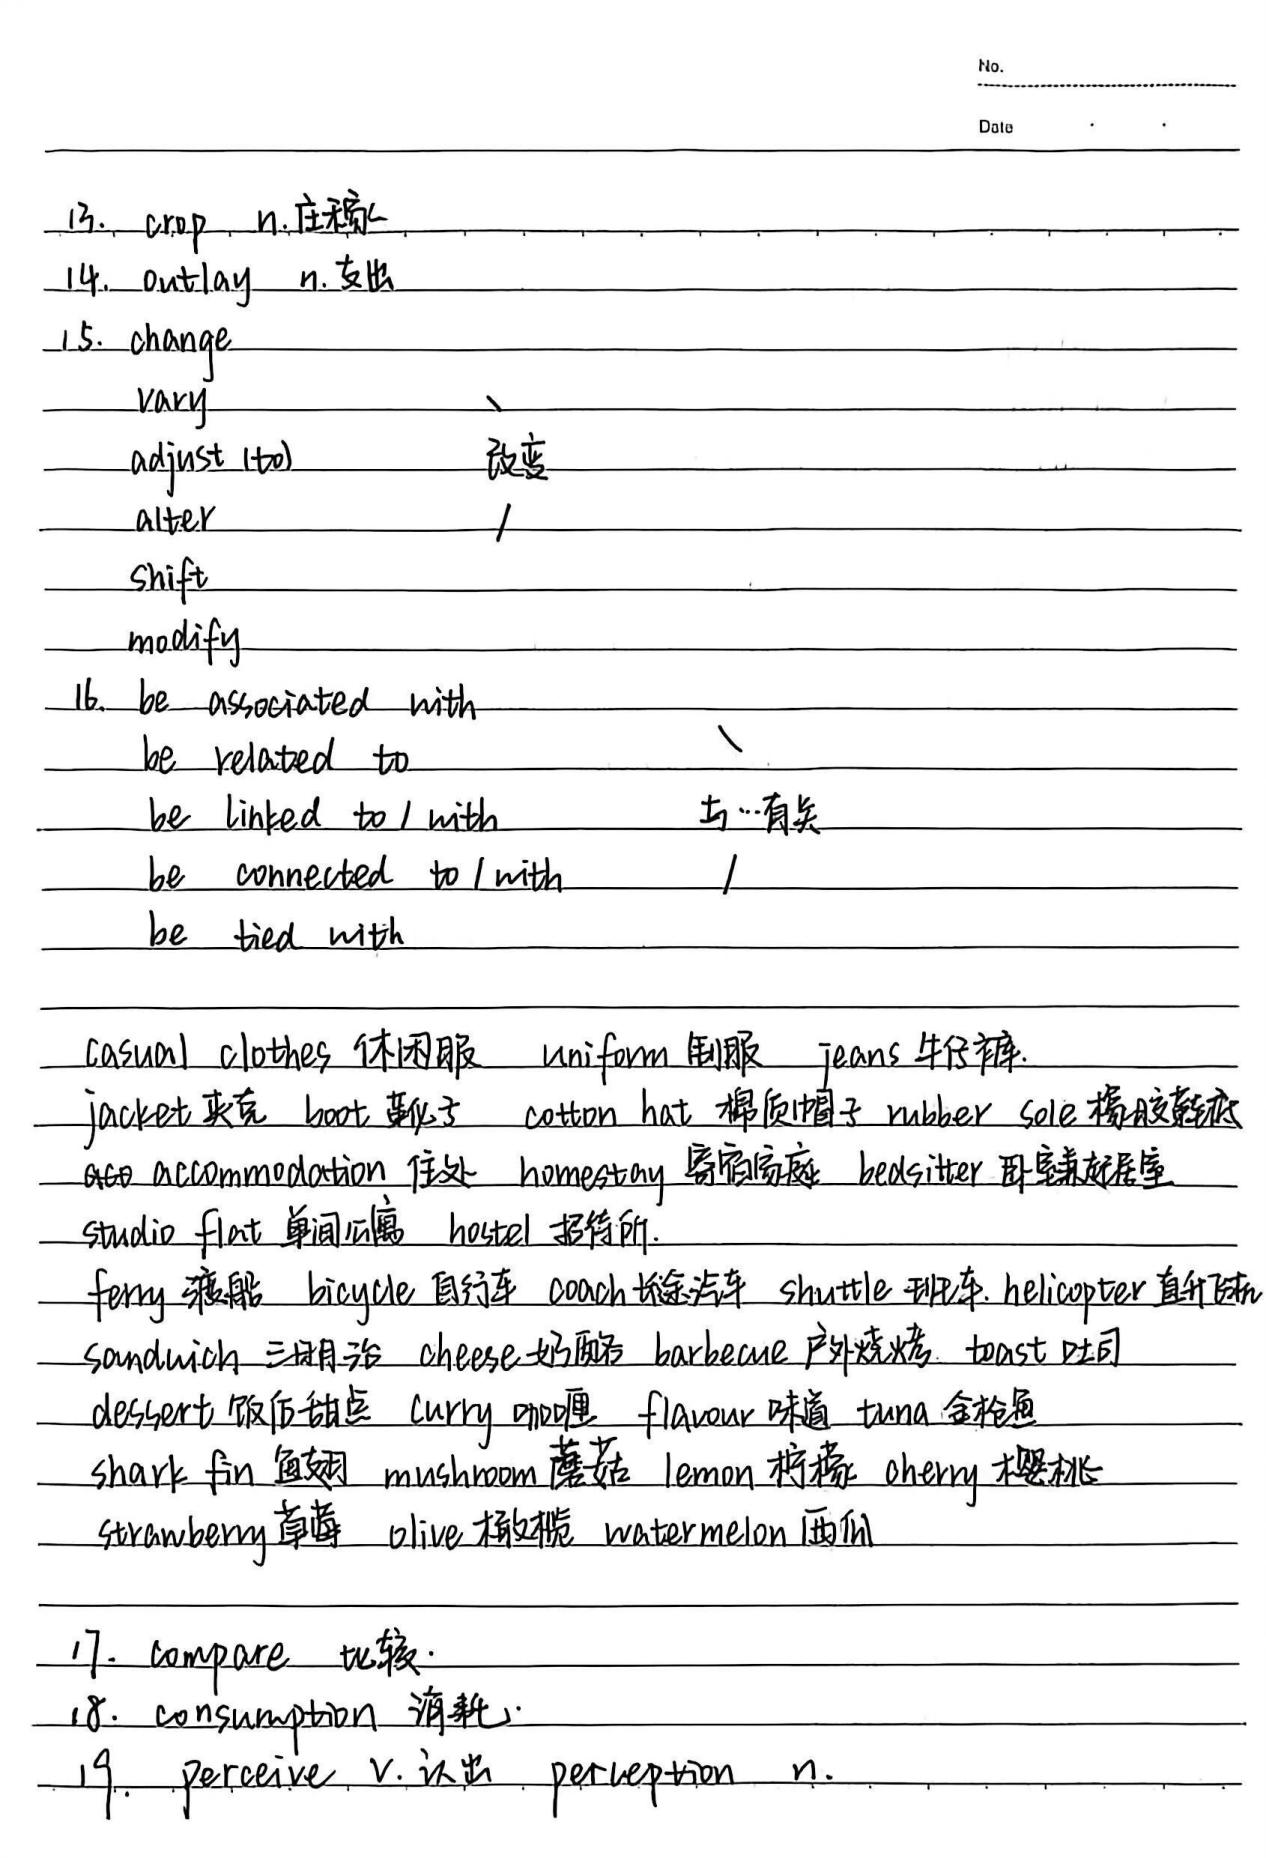 No.
Date
13. crop n. 庄稼
14. outlay n. 支出
15. change
vary
adjust (to) 改变
alter
shift
modify
16. be associated with
be related to
be linked to / with 与…有关
be connected to / with
be tied with
casual clothes 休闲服 uniform 制服 jeans 牛仔裤.
jacket 夹克 boot 靴子 cotton hat 棉质帽子 rubber sole 橡胶鞋底
accommodation 住处 homestay 寄宿家庭 bedsitter 卧室兼起居室
studio flat 单间公寓 hostel 招待所.
ferry 渡船 bicycle 自行车 coach 长途汽车 shuttle 班车. helicopter 直升飞机
sandwich 三明治 cheese 奶酪 barbecue 户外烧烤. toast 吐司
dessert 饭后甜点 curry 咖喱 flavour 味道 tuna 金枪鱼
shark fin 鱼翅 mushroom 蘑菇 lemon 柠檬 cherry 樱桃
strawberry 草莓 olive 橄榄 watermelon 西瓜
17. compare 比较.
18. consumption 消耗.
19. perceive v. 认出 perception n.